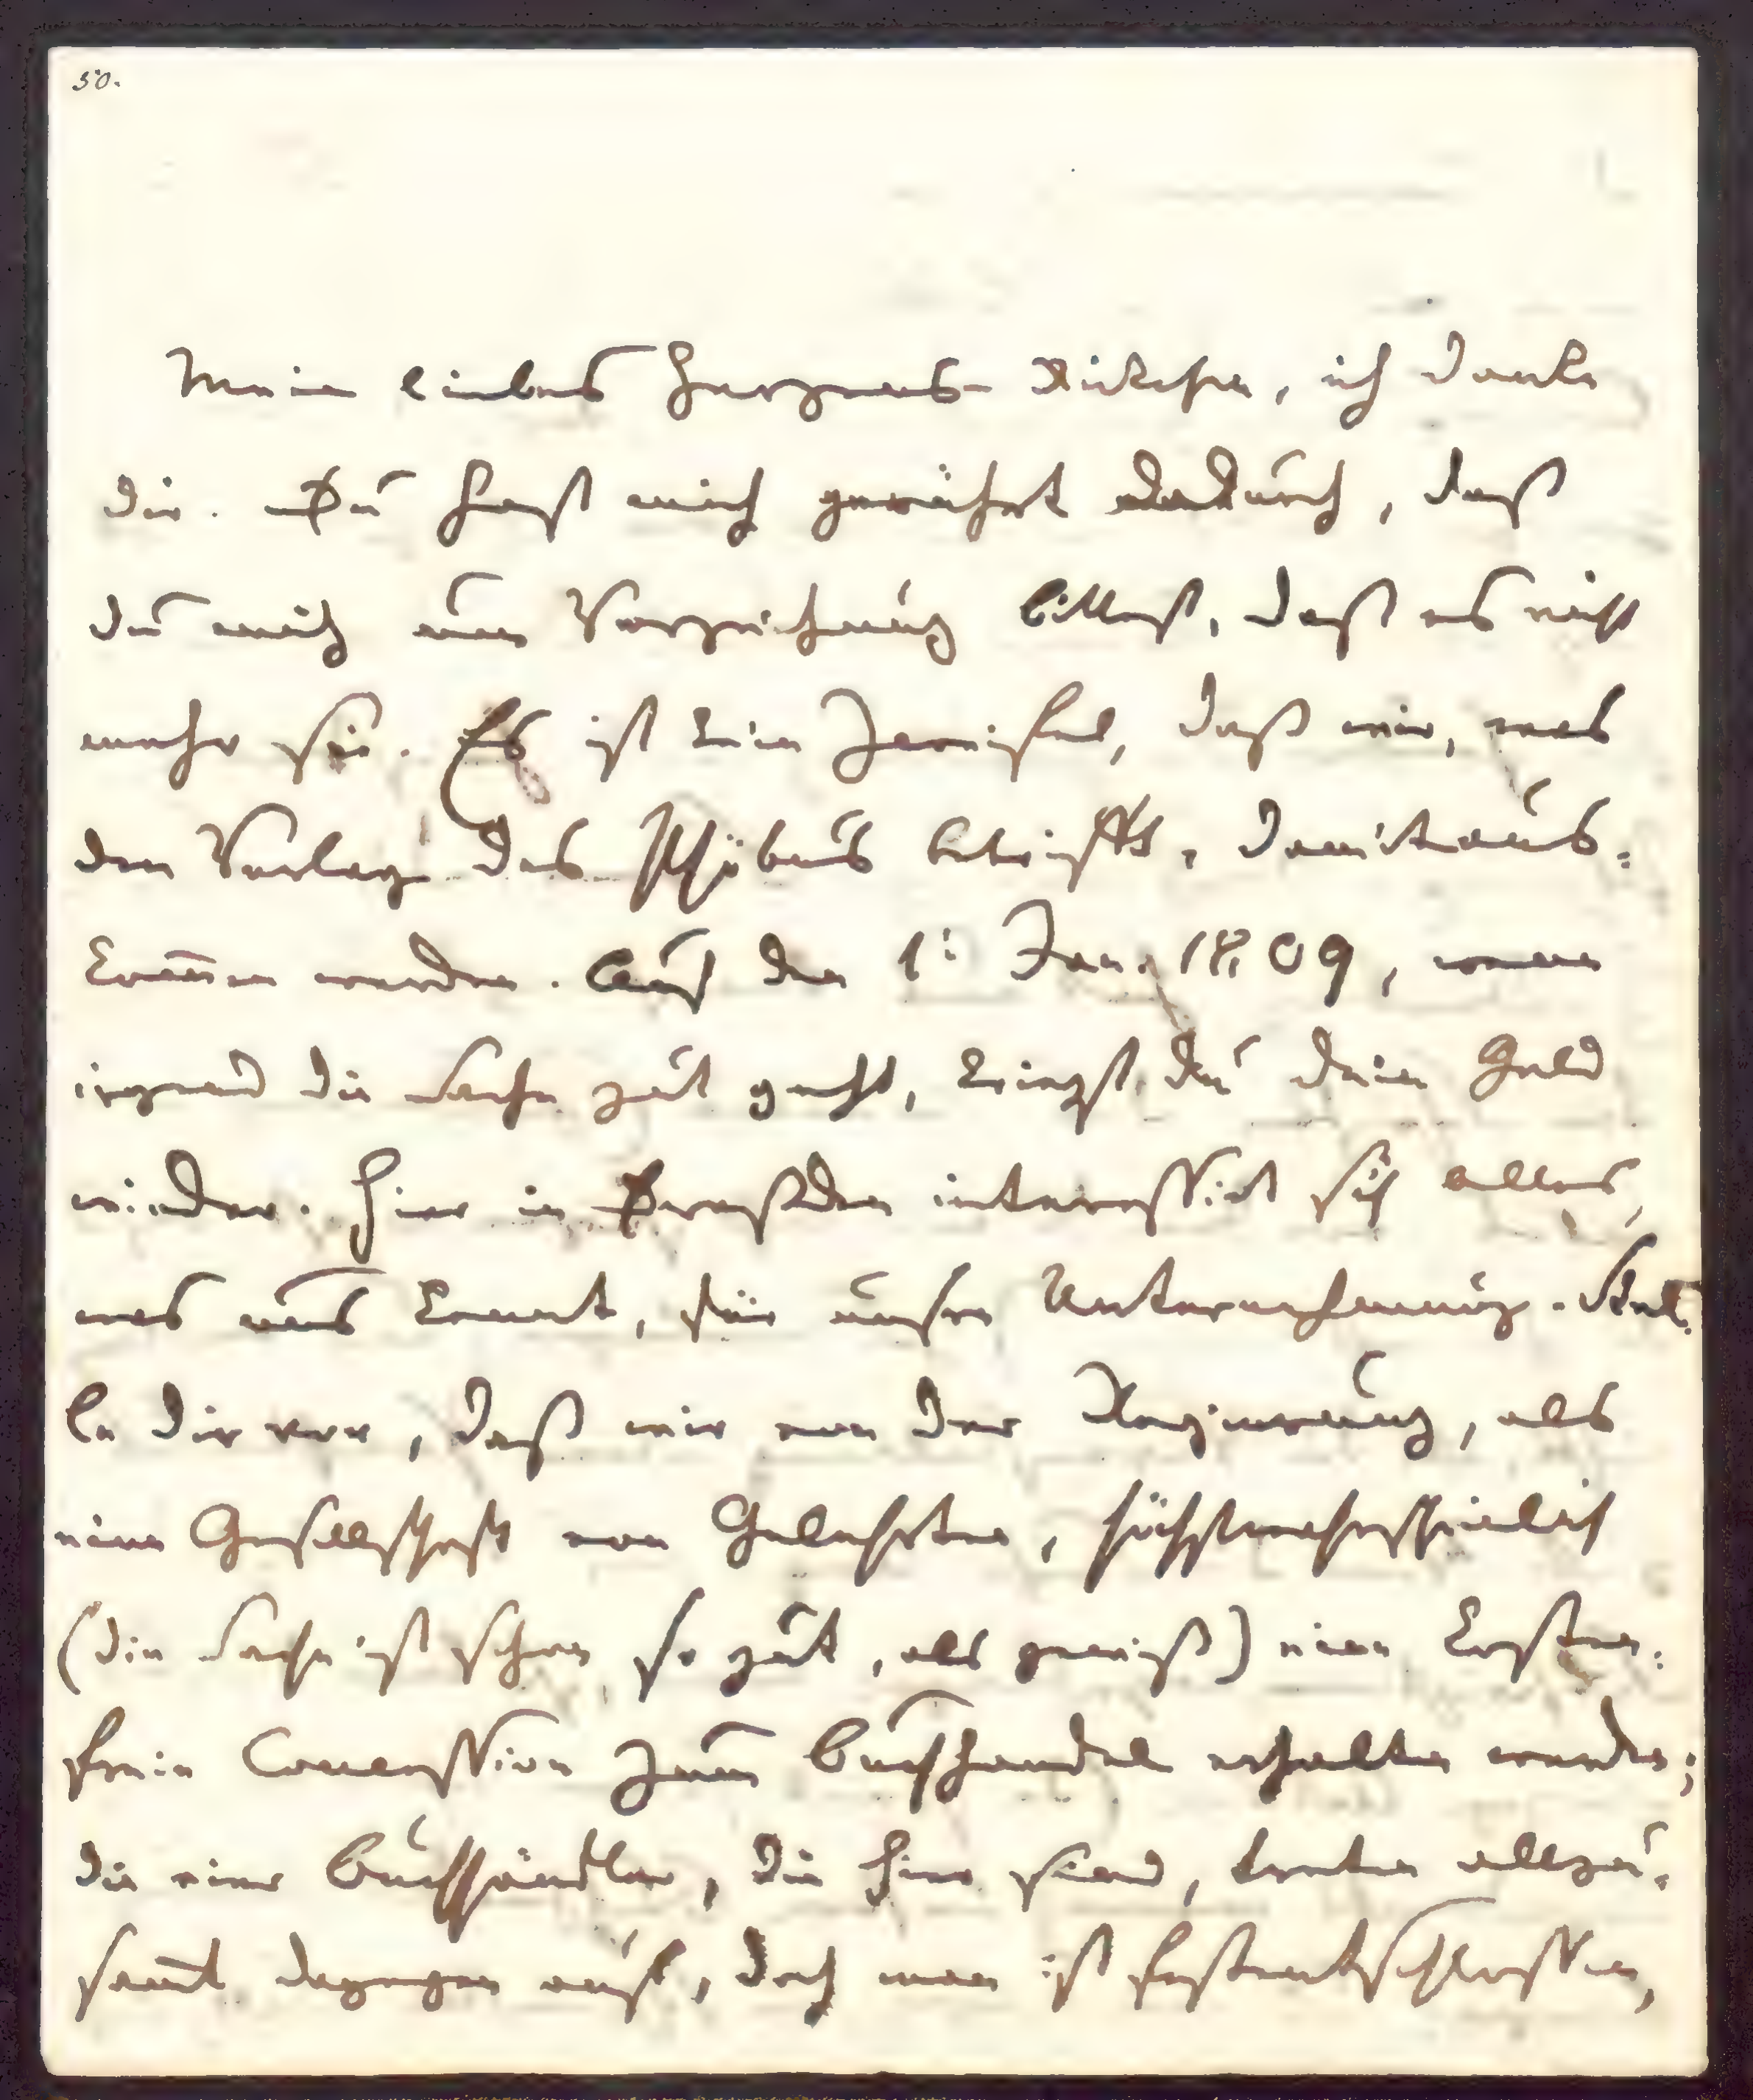 50.
Mein liebes Herzens-Rickchen, ich danke
dir. Du hast mich gerührt dadurch, daß
du mich um Verzeihung bittest, daß es nicht
mehr sei. Es ist kein Zweifel, daß wir, was
den Verlag des Phöbus betrifft, damit aus=
kom̅en werden. Auf den 1t Jan. 1809, wenn
irgend die Sache gut geht, kriegst du dein Geld
wieder. Hier in Dreßden interessirt sich alles,
was uns kennt, für unsre Unternehmung. Stel=
le dir vor, daß wir von der Regierung, als
eine Gesellschaft von Gelehrten, höchstwahrscheinlich
(die Sache ist schon so gut, als gewiß) eine kosten=
freie Concession zum Buchhandel erhalten werden;
die vier Buchhändler, die hier sind, treten allzu=
sam̅t dagegen auf, doch man ist festentschlossen,